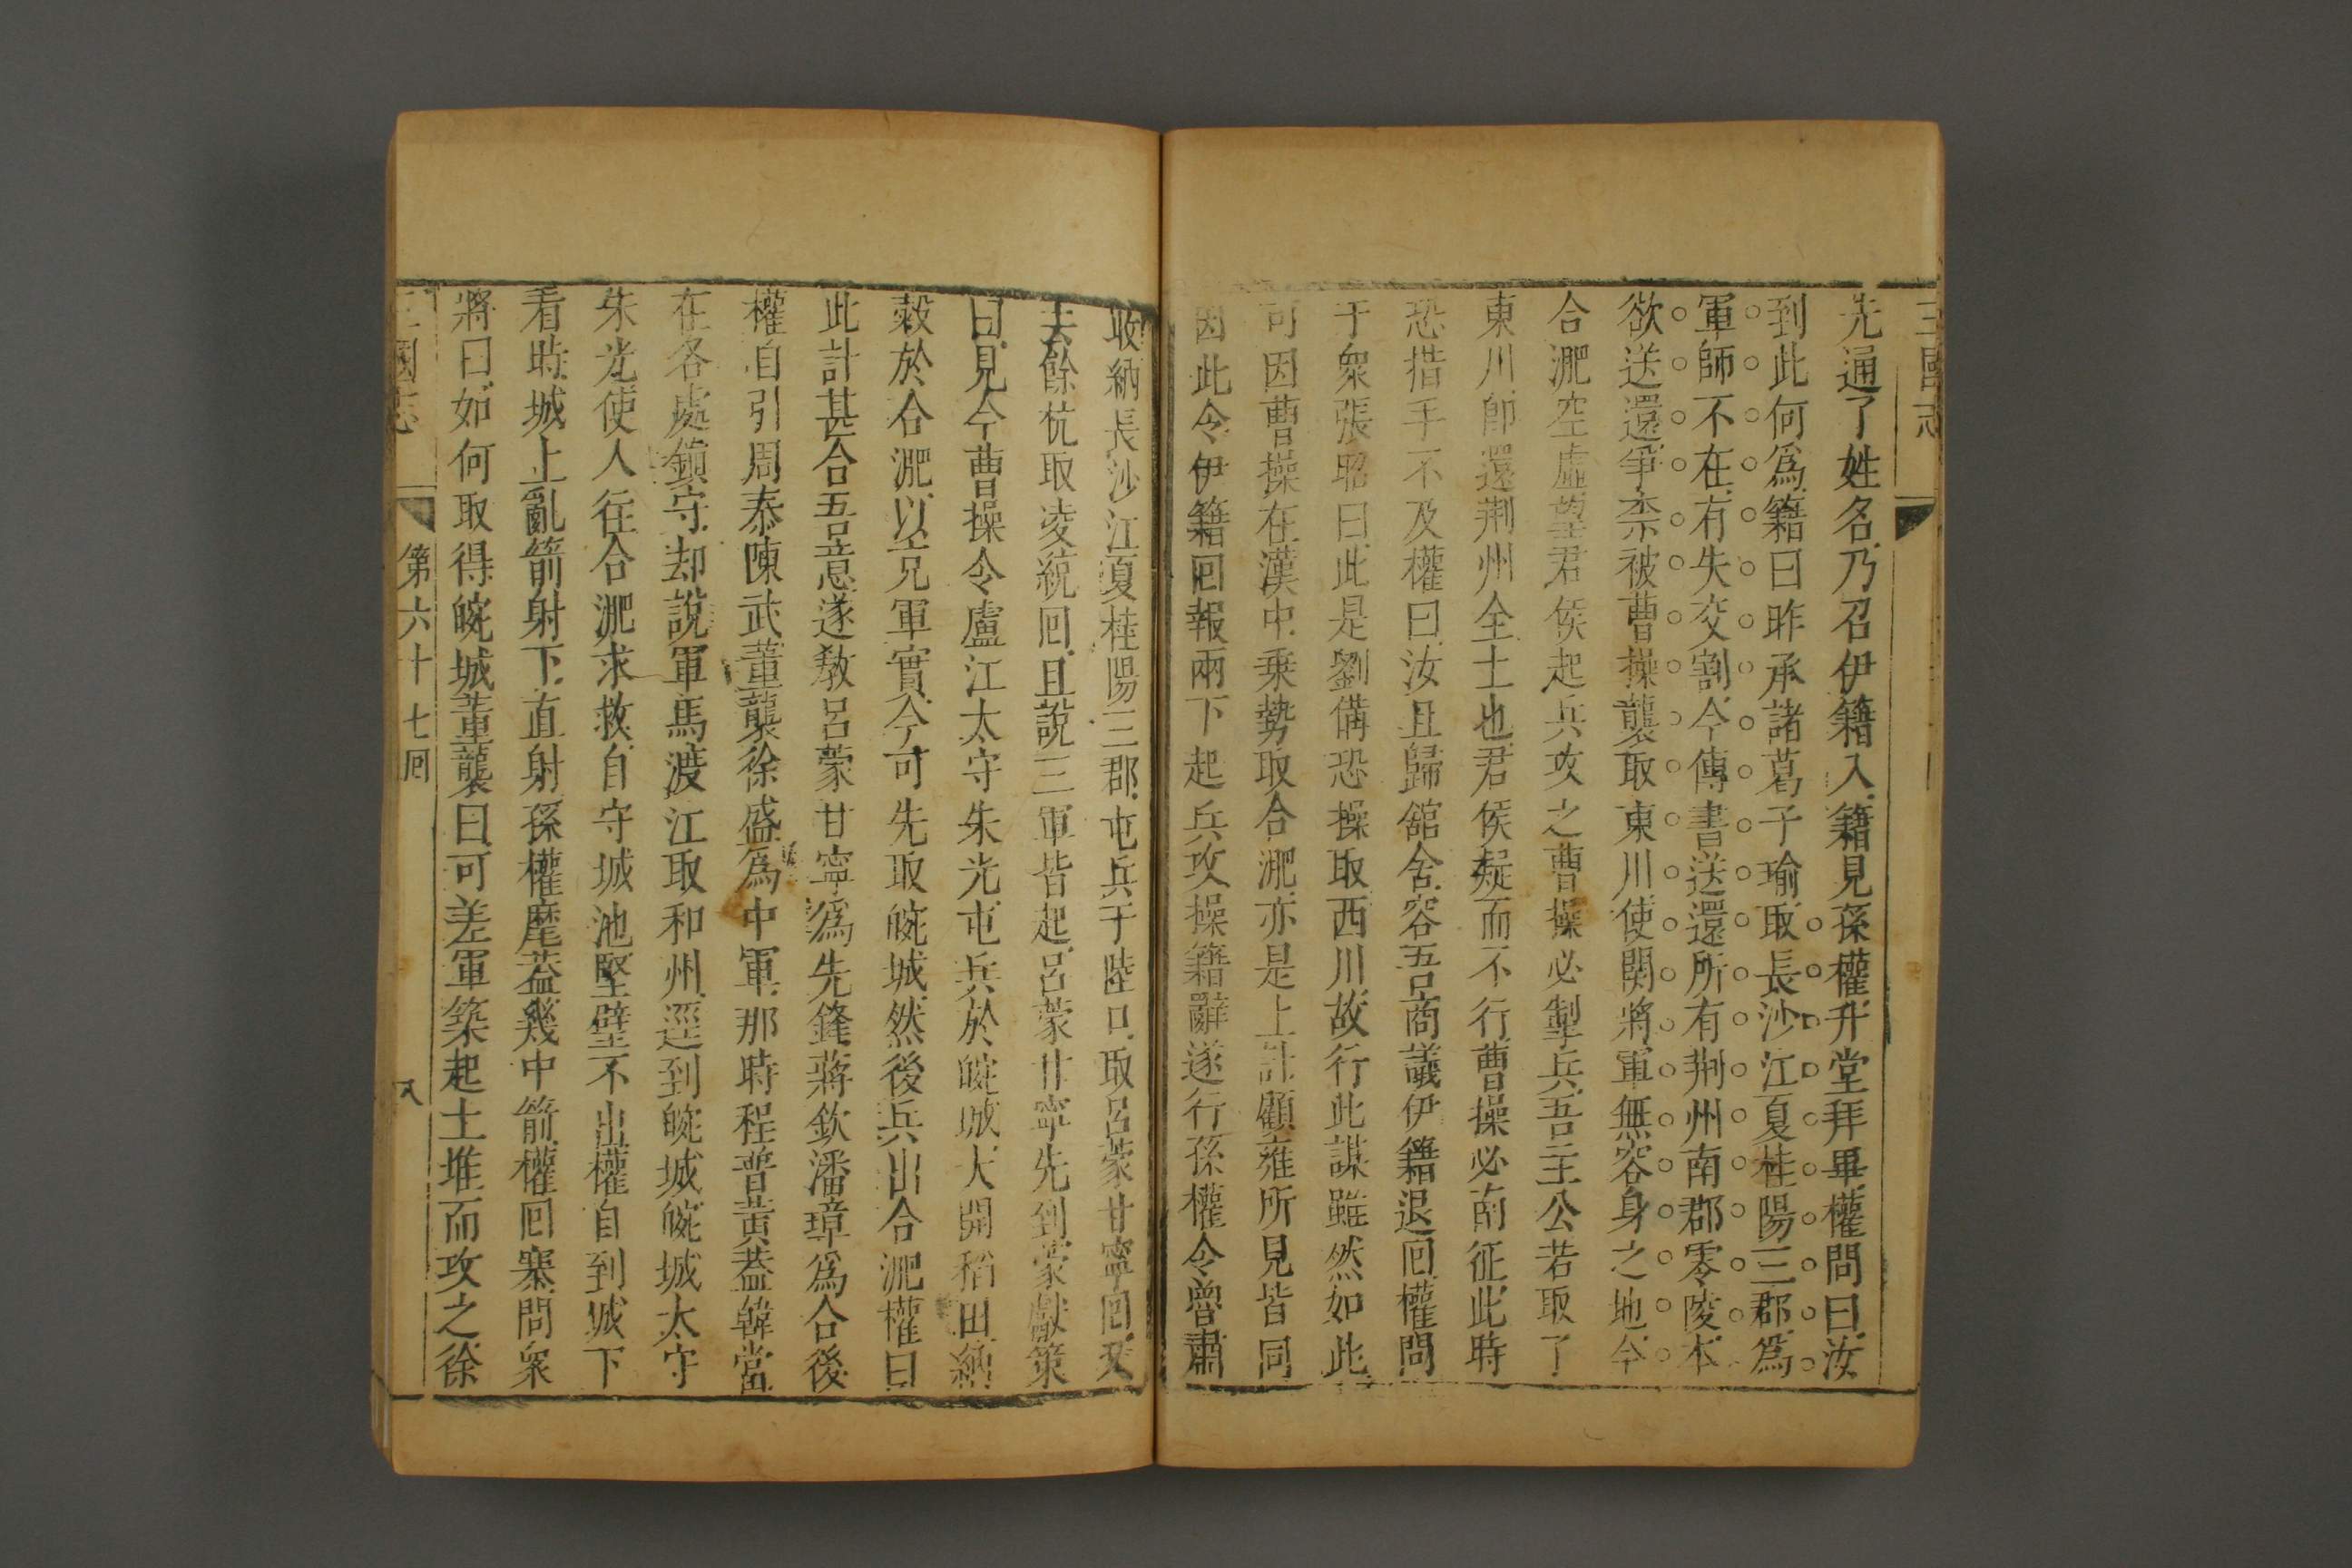 三國志
先通了姓名乃召伊籍入籍見孫權升堂拜畢權問曰汝
到此何爲籍曰昨承諸葛子瑜取長沙江夏桂陽三郡爲
軍師不在有失交割今傳書送還所有荆州南郡零陵本
欲送還爭柰被曹操襲取東川使関將軍無容身之地今
合淝空虛望君侯起兵攻之曹操必掣兵吾主公若取了
東川卽還荆州全土也君侯疑而不行曹操必南征此時
恐措手不及權曰汝且歸舘舍容吾商議伊籍退囘權問
于衆張昭曰此是劉備恐操取西川故行此謀雖然如此
可因曹操在漢中乗勢取合淝亦是上計顧雍所見皆同
因此令伊籍囘報兩下起兵攻操籍辭遂行孫權令魯肅
收納長沙江夏桂陽三郡屯兵于陸口取呂蒙甘寧囘又
去餘杭取凌統囘且說三軍皆起呂蒙甘寧先到蒙獻策
曰見今曹操令盧江太守朱光屯兵於皖城大開稻田納
榖於合淝以至兄軍實今可先取皖城然後兵出合淝權曰
此計甚合吾意遂敎呂蒙甘寧爲先鋒蔣欽潘璋爲合後
權自引周泰陳武董襲徐盛爲中軍那時程普黃蓋韓當
在各處鎮守却說軍馬渡江取和州逕到皖城皖城太守
朱光使人往合淝求救自守城池堅壁不出權自到城下
看時城上亂箭射下直射孫權麾蓋幾中箭權囘寨問衆
將曰如何取得皖城董襲曰可差軍築起土堆而攻之徐
三國志 第六十七囘 八